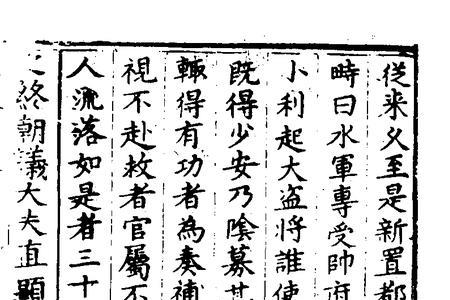 從来久至是新置都
時曰水軍專受帥府
小利起大盜將誰使
既得少安乃陰募其
輙得有功者為奏補
視不赴救者官屬不
人流落如是者三十
終朝議大夫直顯